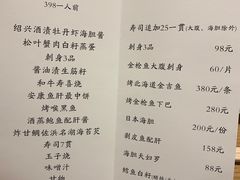 398一人前
绍兴酒渍牡丹虾海胆酱
松叶蟹肉白轩蒸蛋
刺身3品
酱油渍生筋籽
和牛寿喜烧
安康鱼肝最中饼
烤喉黑鱼
酒蒸鲍鱼配肝酱
炸甘鲷佐浜名湖海苔芡
寿司7贯
玉子烧
味噌汁
甘物
寿司追加25一貫（大腹、海胆除外）
刺身3品 98元
金枪鱼大腹刺身 60/片
烤北海道金吉鱼 380元/条
烤金枪鱼下巴 280元
日本海胆 200元/份
剥皮鱼配肝 158元
海胆天妇罗 88元
鳕鱼白籽